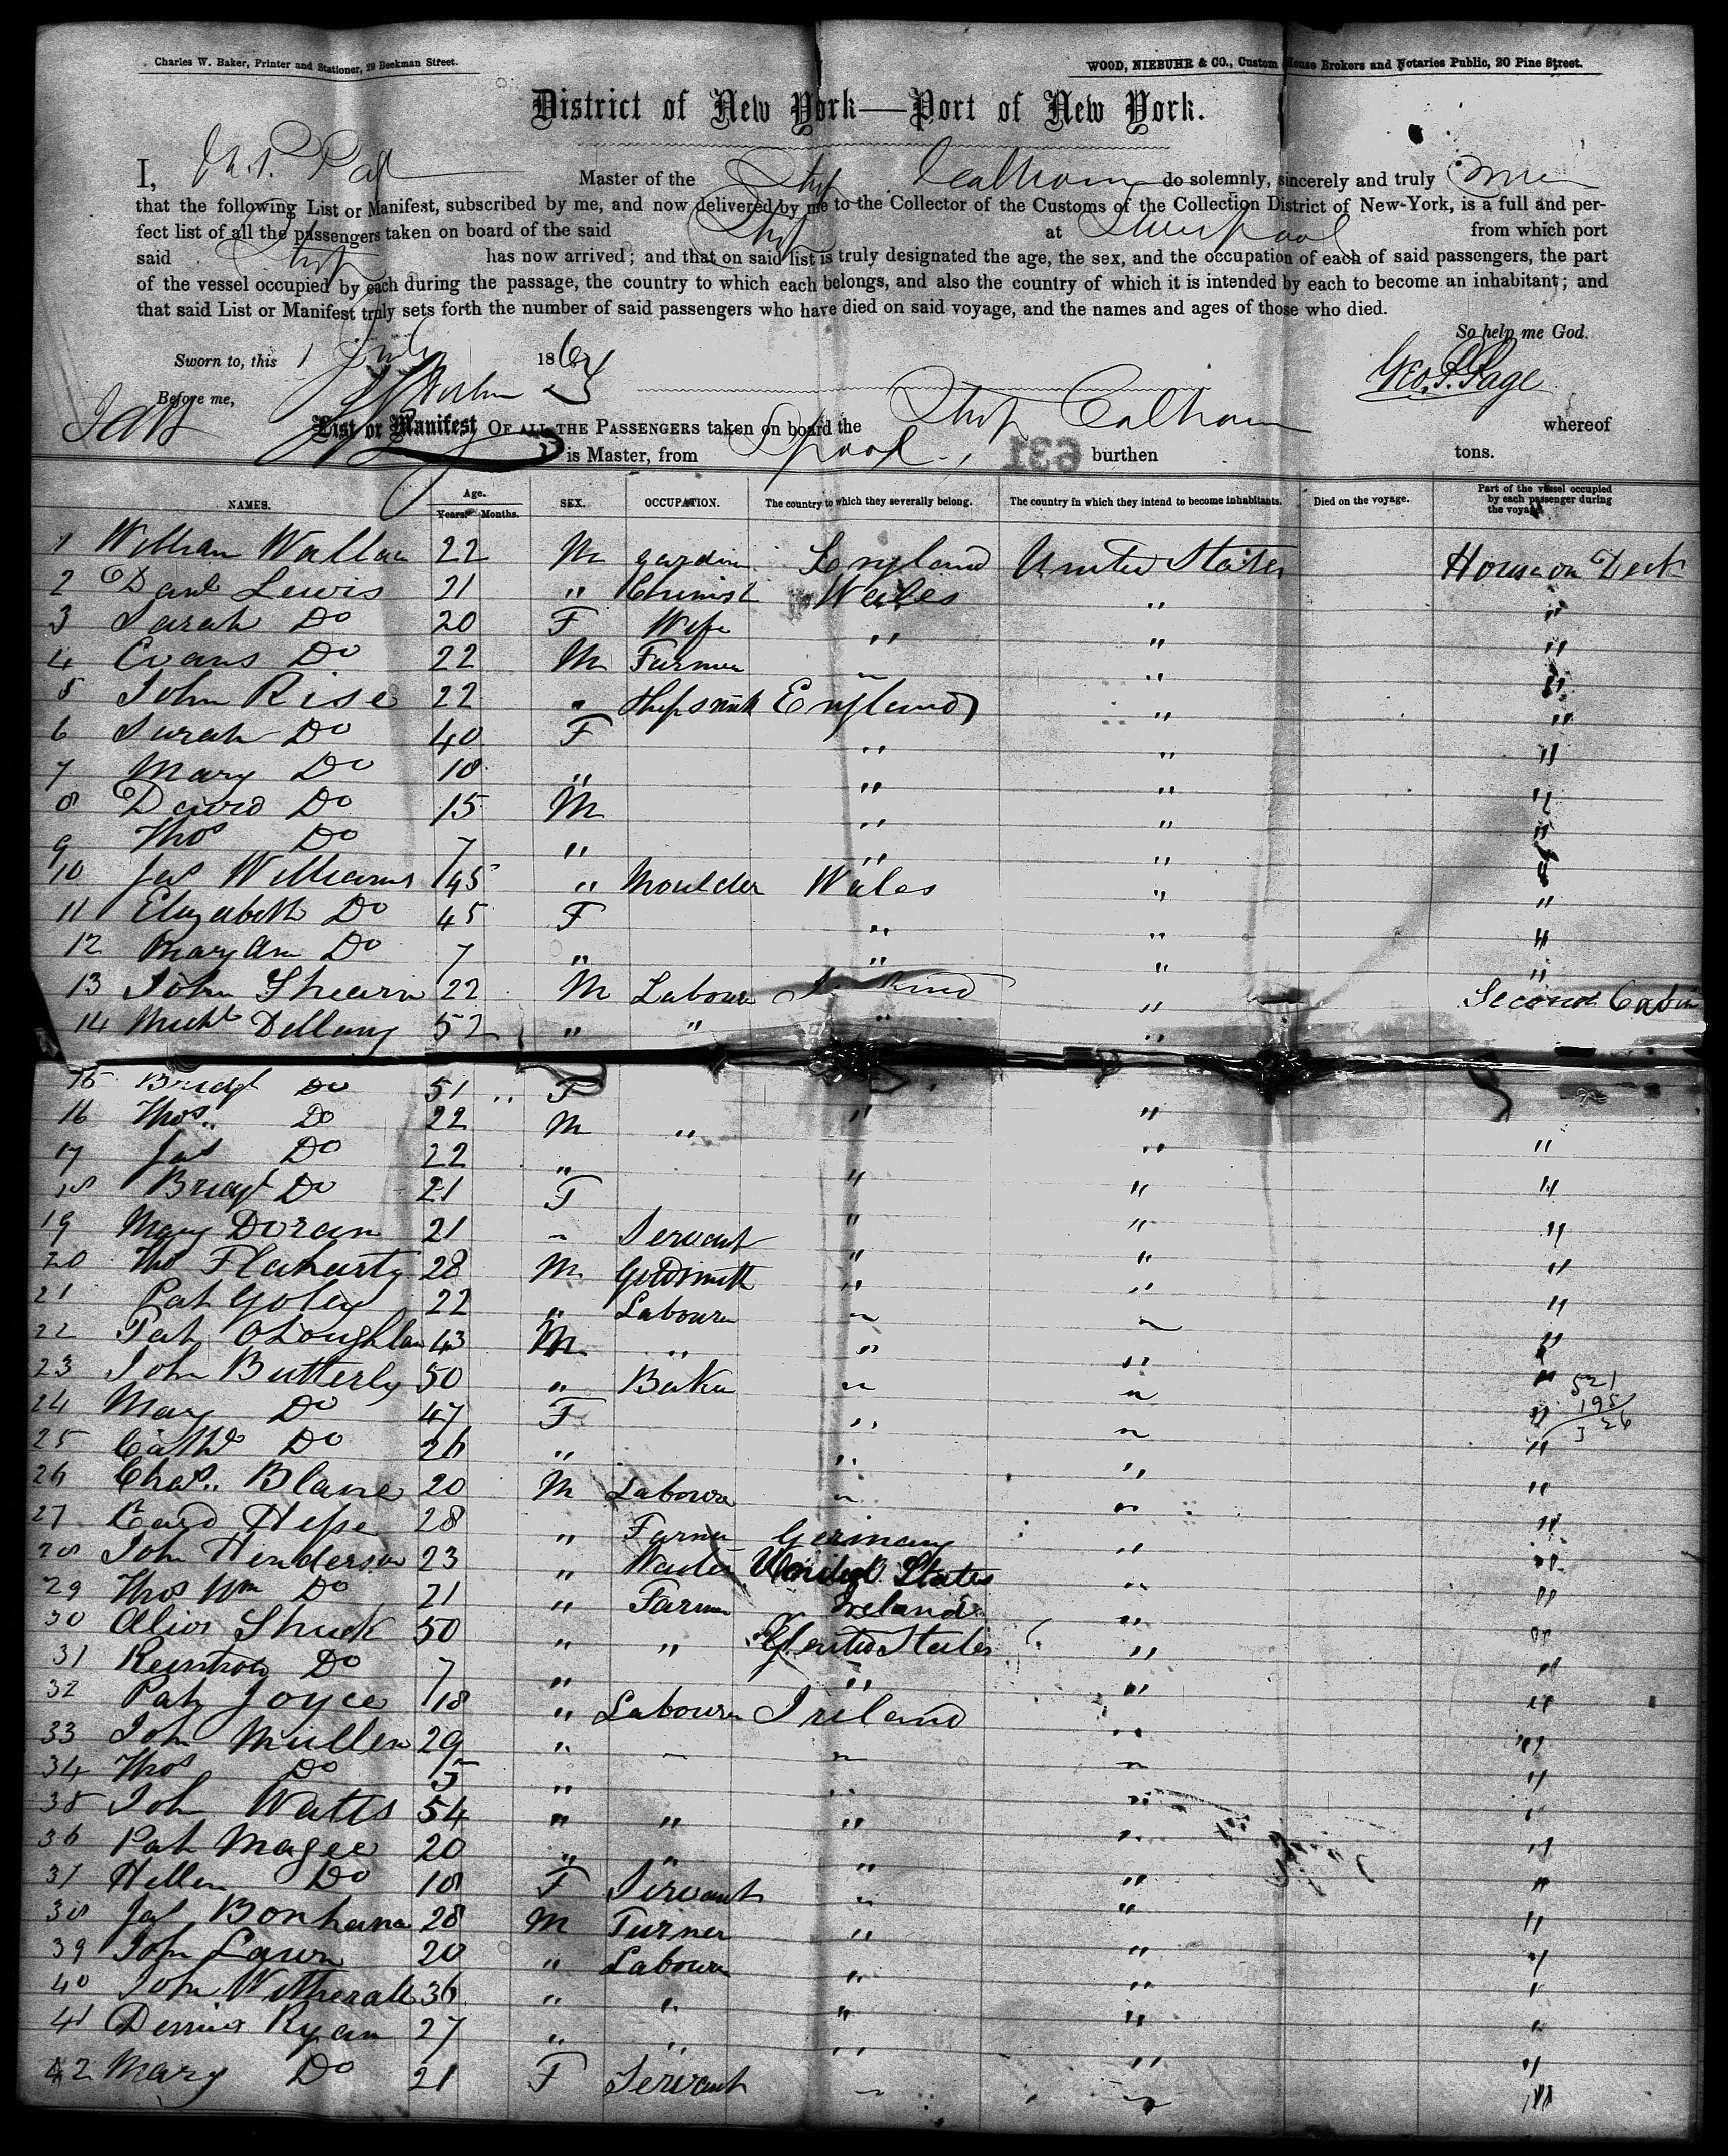 Charles W. Baker, Printer and Stationer, 29 Beekman Street.
WOOD, NIEBUHR & CO., Custom House Brokers and Notaries Public, 20 Pine Street.
District of New York—Port of New York.
I, Master of the Ship Calhoun do solemnly, sincerely and truly
that the following List or Manifest, subscribed by me, and now delivered by me to the Collector of the Customs of the Collection District of New-York, is a full and per-
fect list of all the passengers taken on board of the said Ship at Liverpool from which port
said Ship has now arrived; and that on said list is truly designated the age, the sex, and the occupation of each of said passengers, the part
of the vessel occupied by each during the passage, the country to which each belongs, and also the country of which it is intended by each to become an inhabitant; and
that said List or Manifest truly sets forth the number of said passengers who have died on said voyage, and the names and ages of those who died.
So help me God.
Sworn to, this 1 July 186
Geo. P. Page
Before me,
List or Manifest OF ALL THE PASSENGERS taken on board the Ship Calhoun whereof
is Master, from Lpool 139 burthen tons.
NAMES. Age. Years. Months. SEX. OCCUPATION. The country to which they severally belong. The country in which they intend to become inhabitants. Died on the voyage. Part of the vessel occupied by each passenger during the voyage.
1 William Wallace 22 M England United States House on Deck
2 Danl Lewis 21 " Chimist Wales " "
3 Sarah Do 20 F Wife " " "
4 Evans Do 22 M Farmer " " "
5 John Rise 22 " England " "
6 Sarah Do 40 F " " "
7 Mary Do 18 " " " "
8 David Do 15 M " " "
9 Thos Do 7 " " " "
10 Jas Williams 45 " Moulder Wales " "
11 Elizabeth Do 45 F " " "
12 Mary Ann Do 7 " " " "
13 John Shearn 22 M Labourer Ireland " Second Cabin
14 Michl Dellany 52 " " " "
15 Bridgt Do 51 " F
16 Thos.. Do 22 M " " "
17 Jas Do 22 " " "
18 Bridgt Do 21 F " " "
19 Mary Doran 21 " Servant " " "
20 Tho Flaharty 28 M Goldsmith " " "
21 Pat 22 " Labourer " " "
22 Pat OLoughlan 43 M " " " "
23 John Butterly 50 " Baker " " " 521
24 Mary Do 47 F " " " 195
25 Cathe Do 26 " " " " 326
26 Chas.. Blane 20 M Labourer " " "
27 28 " Farmer Germany " "
28 John Henderson 23 " Waiter United States " "
29 Thos Wm Do 21 " Farmer Ireland " "
30 50 " " United States " "
31 Do 7 " " " "
32 Pat Joyce 18 " Labourer Ireland " "
33 John Mullen 29 " " " " "
34 Thos Do 5 " " " "
35 John Watts 54 " " " " "
36 Pat Magee 20 " " " " "
37 Hellen Do 18 F Servant " " "
38 Jas Bonhana 28 M Turner " " "
39 John Lawn 20 " Labourer " " "
40 John Witherall 36 " " " " "
41 Ryan 27 " " " " "
42 Mary Do 21 F Servant " " "